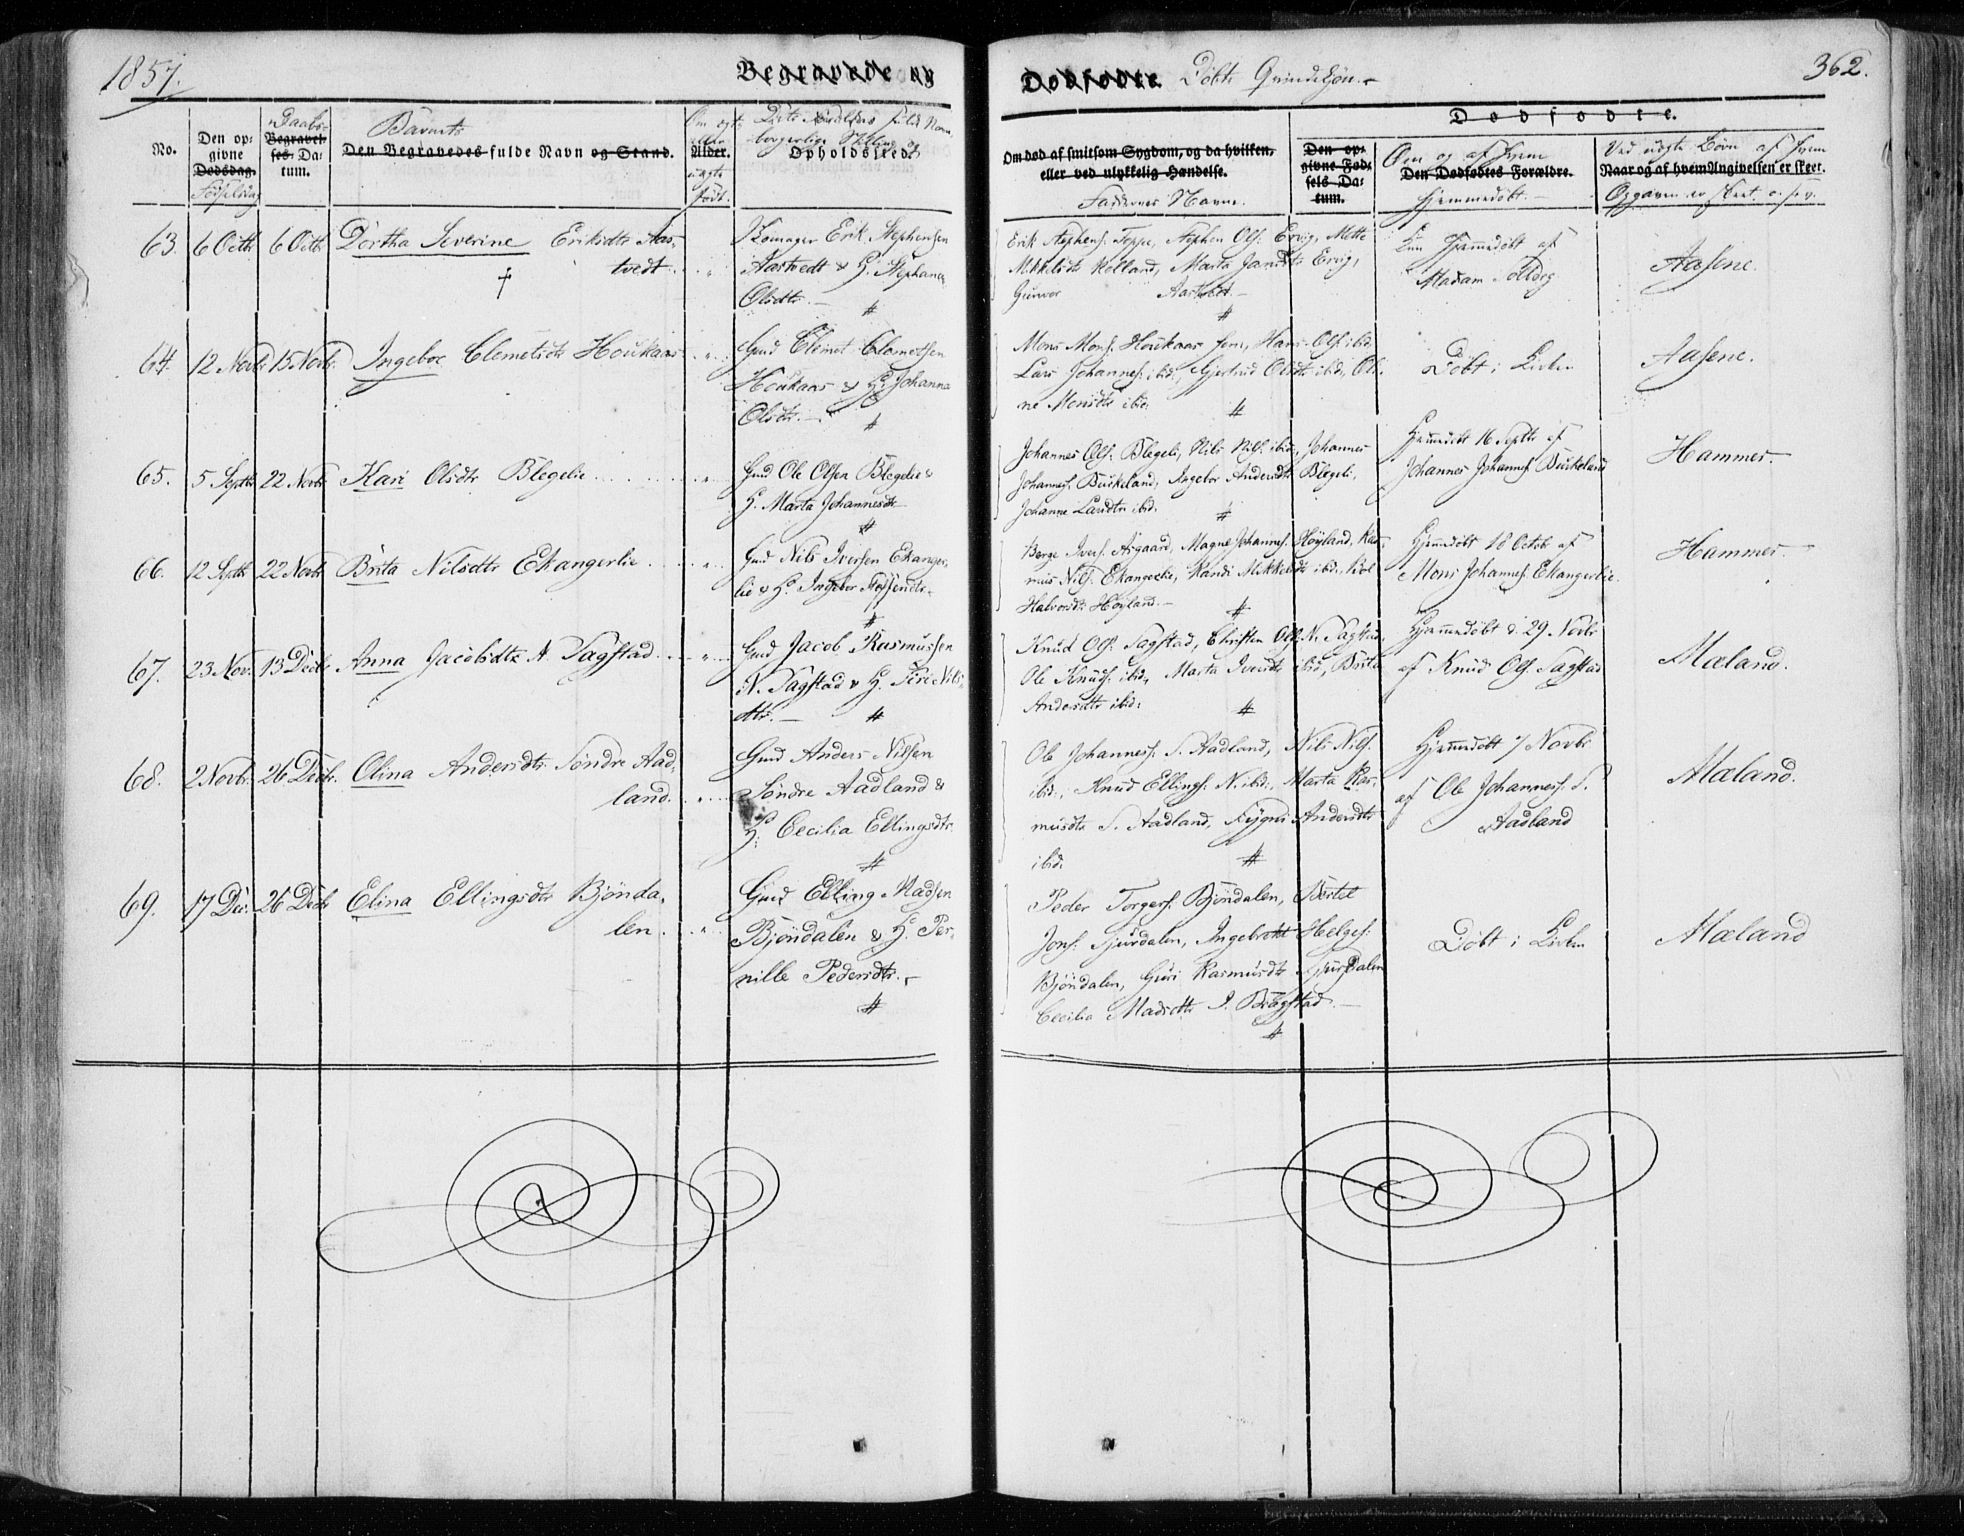 1857.
Begravede og
Dødfødte. Døbte Qvindekjøn.
362.
No.
Den op-
givne
Dødsdag.
Fødselsdag
Daabs-
Begravel-
ses- Da-
tum.
Barnets
Den Begravedes fulde Navn og Stand.
Om ægte
eller
Alder.
uægte
født.
Dets Forældres fulde Navn,
borgerlige Stilling og
Opholdssted.
Om død af smitsom Sygdom, og da hvilken,
eller ved ulykkelig Hændelse.
Faddernes Navne.
Dødfødte.
Den op-
givne Fød-
sels Da-
tum.
Om og af hvem
Den Dødfødtes Forældre.
hjemmedøbt.
Ved uægte Børn af hvem
Naar og af hvem Angivelsen er skeet.
Opgaven er skeet o. s. v.
63. 6 Octb 6 Octb Dorthea Severine Eriksdtr Aas-
tvedt
Erik Stephensen
Aastvedt & H. Stephane
Olsdtr.
Erik Stephens. Toppe, Stephen Ols. Ervig, Mette
Mikkelsdtr Kolland, Marta Jansdtr Ervig,
Gunvor Aastvedt
Hjemmedøbt af
Madam Solberg
Aasene.
64. 12 Novbr 15 Novbr. Ingebor Clemetsdtr Houkaas
Gmd Clemet Clemetsen
Houkaas & H. Johanna
Olsdtr.
Mons Mons. Houkaas sen., Hans Ols. ibd.
Lars Johannes. ibid., Gjertrud Olsdtr ibid., Oli-
ne Monsdtr ibid.
Døbt i Kirken
Aasene.
65. 5 Septbr 22 Novbr Kari Olsdtr Blegelie
Gmd Ole Olsen Blegelie &
H. Marta Johannesdtr
Johannes Ols. Blegeli, Nils Nils. ibid., Johannes
Johannes. Burkeland, Ingebor Andersdtr Blegeli,
Johanne Larsdtr ibid.
Hjemmedøbt 16 Septbr af
Johannes Johannes. Burkeland
Hammer.
66. 12 Septbr 22 Novbr Brita Nilsdtr Ekangerlie
Gmd Nils Iversen Ekanger-
lie & H. Ingebor
Berge Ivers. Asgaard, Magne Johannes. Høyland, Ras-
mus Nils. Ekangerlie, Randi Mikkelsdtr ibid.,
Halvorsdtr Høyland.
Hjemmedøbt 18 Octobr af
Mons Johannes. Ekangerlie.
Hammer.
67. 23 Nov. 13 Decb Anna Jacobsdtr N. Tagstad
Gmd Jacob Rasmussen
N. Tagstad & H. Siri Nils-
dtr.
Knud Ols. Tagstad, Christen Ols. N. Tagstad,
Ole Knuds. ibid., Marta Iversdtr ibid., Brita
Andersdtr ibid.
Hjemmedøbt d. 29 Novbr
af Knud Ols. Tagstad
Mæland.
68. 2 Novbr. 26 Decbr. Olina Andersdtr. Søndre Aad-
land.
Gmd Anders Nilsen
Søndre Aadland &
H. Cecilia Ellingsdtr.
Ole Johannes. S. Aadland, Nils Nils.
ibid., Knud Ellings. N. ibid., Marta Ras-
musdtr S. Aadland, Andersdtr
ibid.
Hjemmedøbt 7 Novbr
af Ole Johannes. S.
Aadland
Mæland.
69. 17 Dec. 26 Decb Elina Ellingsdtr Bjønda-
len.
Gmd Elling Madsen
Bjøndalen & H. Per-
nille Pedersdtr.
Peder Torgers. Bjøndalen, Bertel
Jons. Sjurdalen, Ingebrokt Helges.
Bjøndalen, Guri Rasmusdtr Sjurdalen
Cecilia Madsdtr I. Bragstad.
Døbt i Kirken
Mæland